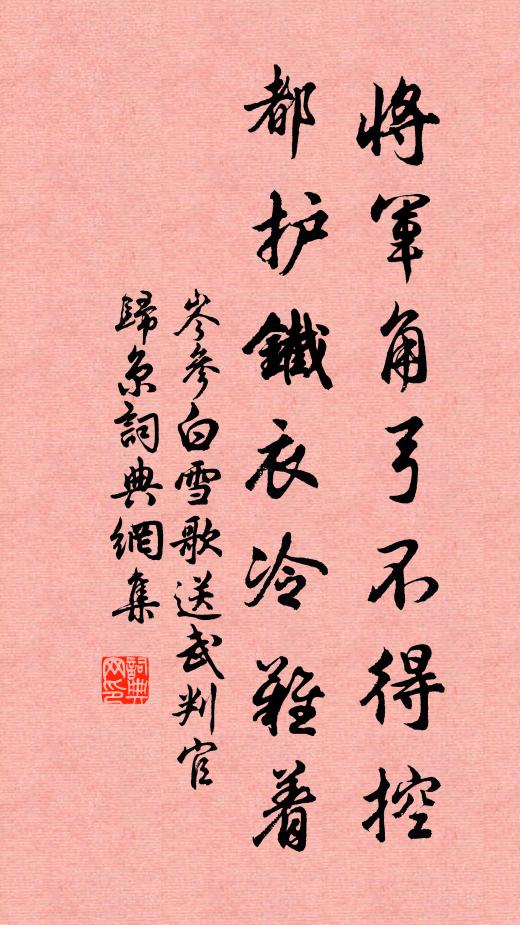 將軍角弓不得控
都护鐵衣冷難着
岑參白雪歌送武判官
歸京詞典網集
詞典网印